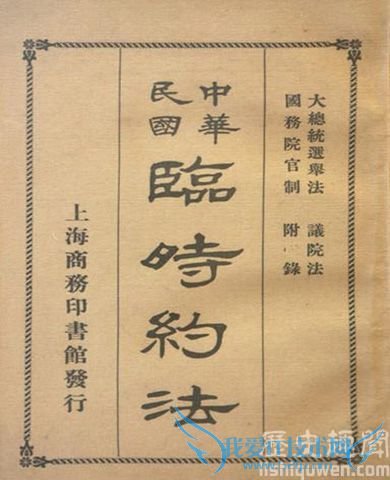 大總統選舉法 議院法
國務院官制 附 錄
中華
民國
臨時約法
上海商務印書館發行
我爱IT技术网
歷史趣聞
lishiquwen.com